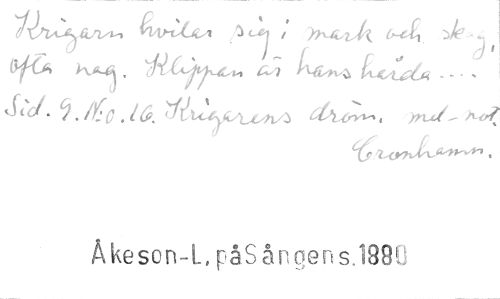 Krigarn hvilar sig i mark och skog,
ofta nog. Klippan är hans hårda....
Sid. 9. N:o. 16. Krigarens dröm. mel-not.
Cronhamn.
Åkeson-L. på Sångens. 1880